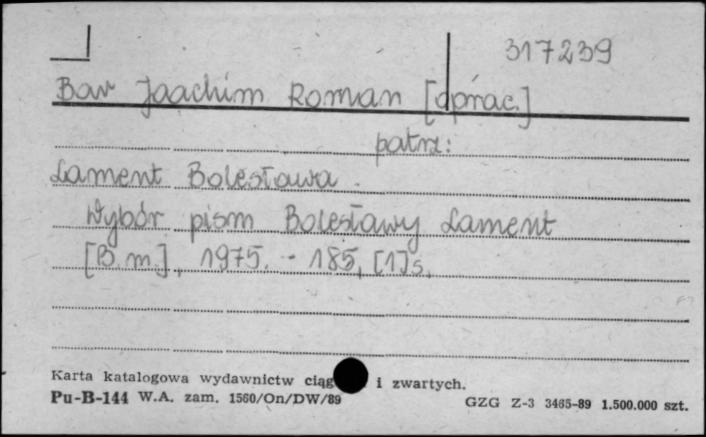 317239
Bar Joachim Roman [oprac.]
patrz:
Lament Bolesława.
Wybór pism Bolesławy Lament
[B.m.], 1975. - 185, [1] s.
Karta katalogowa wydawnictw ciąg i zwartych.
Pu-B-144 W.A. zam. 1560/On/DW/89 GZG Z-3 3465-89 1.500.000 szt.